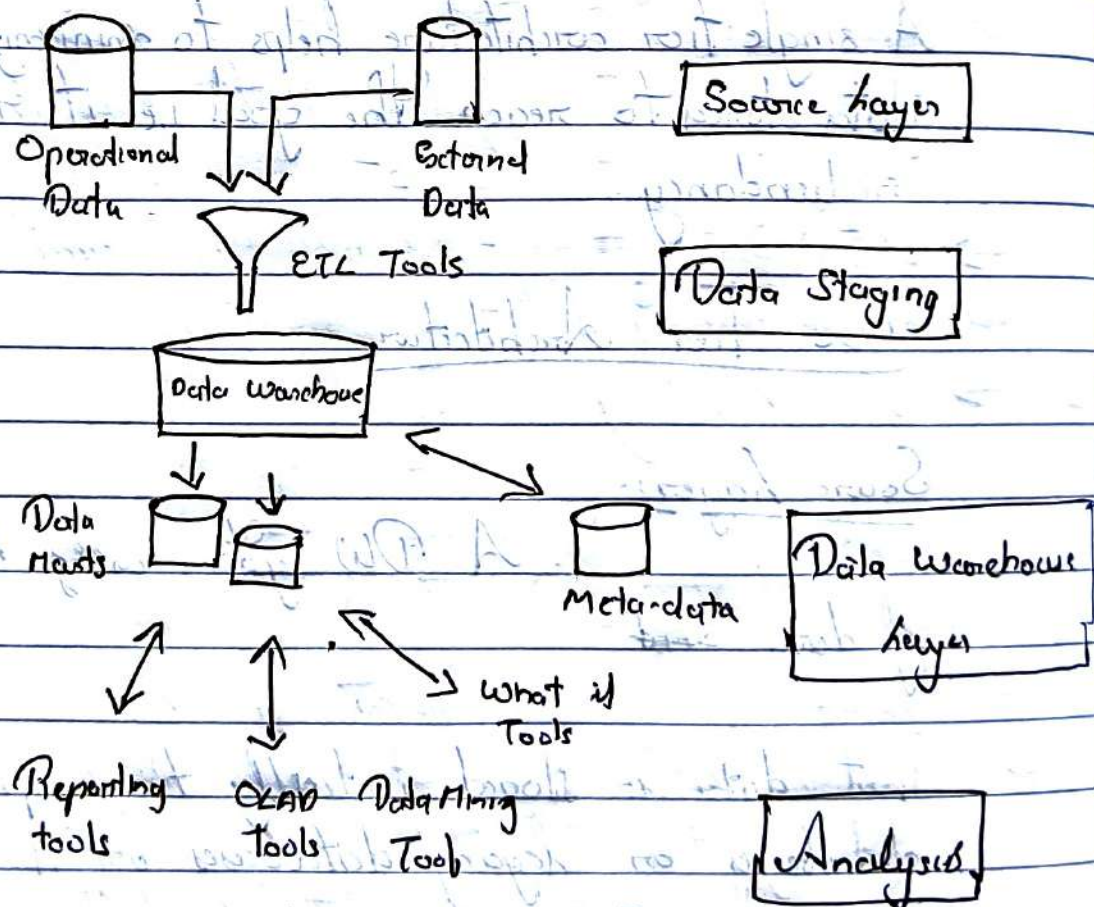 Source Layer
Operational
Data
External
Data
ETL Tools
Data Staging
Data Warehouse
Data
Marts
Meta-data
Data Warehouse
Layer
What if
Tools
Reporting
tools
OLAP
Tools
Data Mining
Tool
Analysis